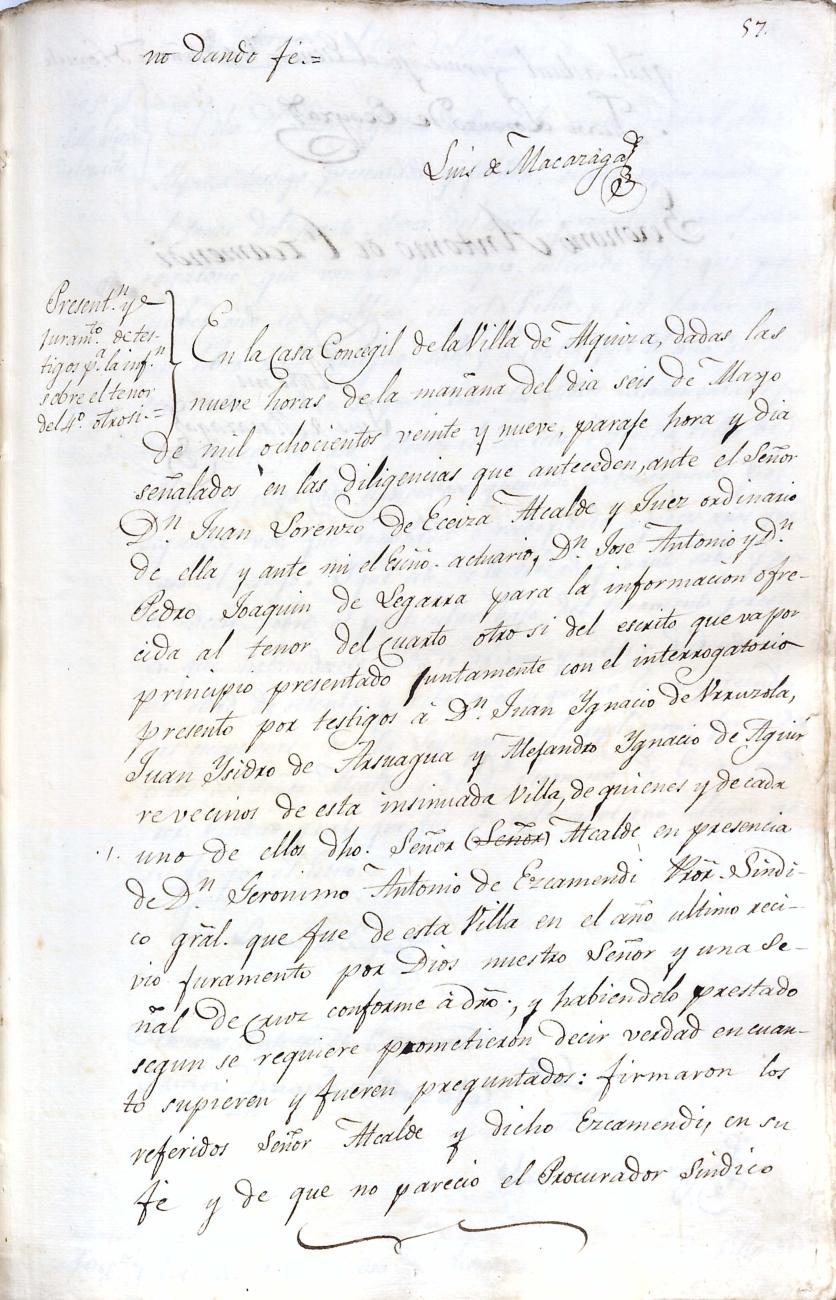 57.
no dando fé.=
Luis de Macazaga
Present.n y
juram.to de tes-
tigos p.a la inf.n
sobre el tenor
del 4.o otrosi.=
En la Casa Concegil de la Villa de Alquiza, dadas las
nueve horas de la mañana del dia seis de Mayo
de mil ochocientos veinte y nueve, parage hora y dia
señalados en las diligencias que anteceden, ante el Señor
D.n Juan Lorenzo de Eceiza Alcalde y Juez ordinario
de ella y ante mi el Esno. actuario, D.n Jose Antonio y D.n
Pedro Joaquin de Legarra para la informacion ofre-
cida al tenor del cuarto otro si del escrito que va por
principio presentado juntamente con el interrogatorio
presentó por testigos á D.n Juan Ygnacio de Urruzola,
Juan Ysidro de Arsuagua y Alejandro Ygnacio de Aguir
re vecinos de esta insinuada Villa, de quienes y de cada
uno de ellos dho. Señor (Señor) Alcalde en presencia
de D.n Geronimo Antonio de Ezcamendi Pror. Sindi-
co gral. que fue de esta Villa en el año ultimo reci-
vió juramento por Dios nuestro Señor y una Se-
ñal de Cruz conforme á dro., y habiendolo prestado
segun se requiere prometieron decir verdad en cuan-
to supieren y fueren preguntados: firmaron los
referidos Señor Alcalde y dicho Ezcamendi, en su
fé y de que no pareció el Procurador Sindico